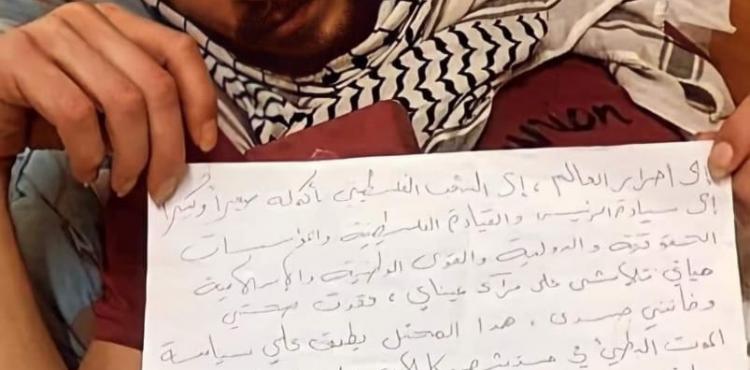 union
إلى أحرار العالم ، إلى الشعب الفلسطيني بأكمله صغيراً وكبيراً
إلى سيادة الرئيس والقيادة الفلسطينية والمؤسسات
الحقوقية والدولية والقوى الوطنية والإسلامية
حياتي تتلاشى على مرآى عيناي ، فقدت صحتي
وخانني جسدي ، هذا المحتل يطبق علي سياسة
الموت البطيء في